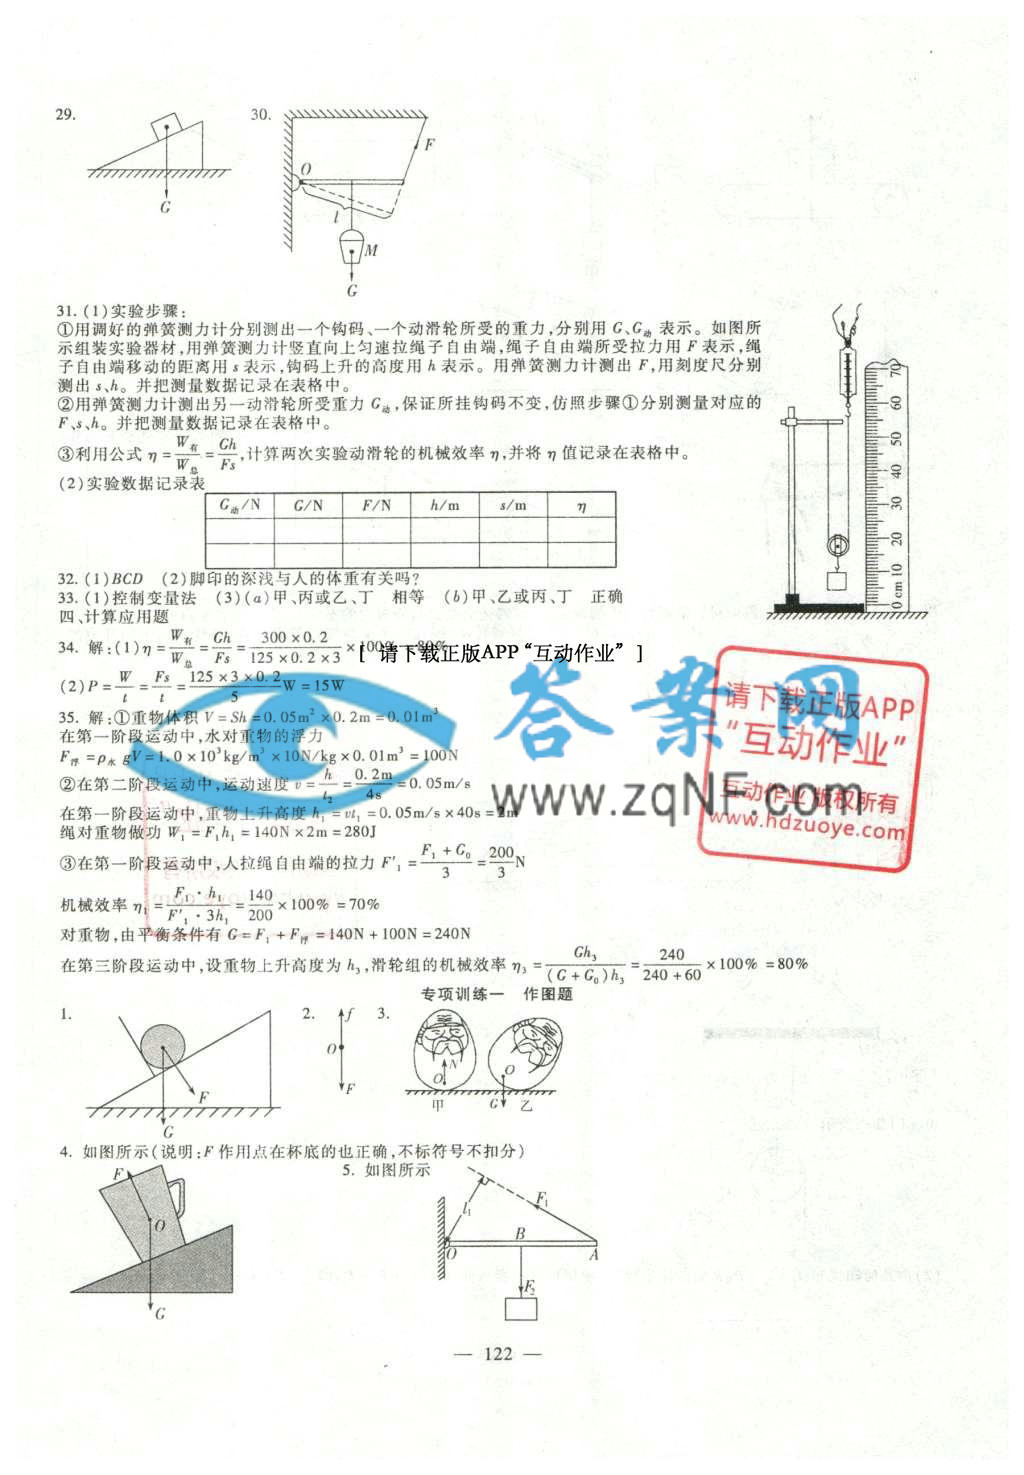 29.
G
30.
F
O
l
M
G
31. (1)实验步骤:
①用调好的弹簧测力计分别测出一个钩码、一个动滑轮所受的重力,分别用 G、G动 表示。如图所
示组装实验器材,用弹簧测力计竖直向上匀速拉绳子自由端,绳子自由端所受拉力用 F 表示,绳
子自由端移动的距离用 s 表示,钩码上升的高度用 h 表示。用弹簧测力计测出 F,用刻度尺分别
测出 s、h。并把测量数据记录在表格中。
②用弹簧测力计测出另一动滑轮所受重力 G动,保证所挂钩码不变,仿照步骤①分别测量对应的
F、s、h。并把测量数据记录在表格中。
③利用公式 η = W有/W总 = Gh/Fs,计算两次实验动滑轮的机械效率 η,并将 η 值记录在表格中。
(2)实验数据记录表
G动/N G/N F/N h/m s/m η
70
60
50
40
30
20
10
0 cm
32. (1)BCD (2)脚印的深浅与人的体重有关吗?
33. (1)控制变量法 (3)(a)甲、丙或乙、丁 相等 (b)甲、乙或丙、丁 正确
四、计算应用题
34. 解:(1)η = W有/W总 = Gh/Fs = 300×0.2/125×0.2×3 ×100% = 80%
[ 请下载正版APP“互动作业” ]
(2)P = W/t = Fs/t = 125×3×0.2/5 W = 15W
35. 解:①重物体积 V = Sh = 0.05m² × 0.2m = 0.01m³
在第一阶段运动中,水对重物的浮力
F浮 = ρ水 gV = 1.0×10³kg/m³ ×10N/kg×0.01m³ = 100N
②在第二阶段运动中,运动速度 v = h/t₂ = 0.2m/4s = 0.05m/s
在第一阶段运动中,重物上升高度 h₁ = vt₁ = 0.05m/s×40s = 2m
绳对重物做功 W₁ = F₁h₁ = 140N×2m = 280J
③在第一阶段运动中,人拉绳自由端的拉力 F'₁ = F₁ + G₀/3 = 200/3 N
机械效率 η₁ = F₁·h₁/F'₁·3h₁ = 140/200 ×100% = 70%
对重物,由平衡条件有 G = F₁ + F浮 = 140N + 100N = 240N
在第三阶段运动中,设重物上升高度为 h₃,滑轮组的机械效率 η₃ = Gh₃/(G + G₀)h₃ = 240/240 + 60 ×100% = 80%
答案网
www.zqNF.com
请下载正版APP
“互动作业”
互动作业 版权所有
www.hdzuoye.com
专项训练一 作图题
1.
F
G
2.
f
O
F
3.
N
O
甲
O
G
乙
4. 如图所示(说明:F 作用点在杯底的也正确,不标符号不扣分)
F
O
G
5. 如图所示
l₁
F₁
O
B
A
F₂
— 122 —